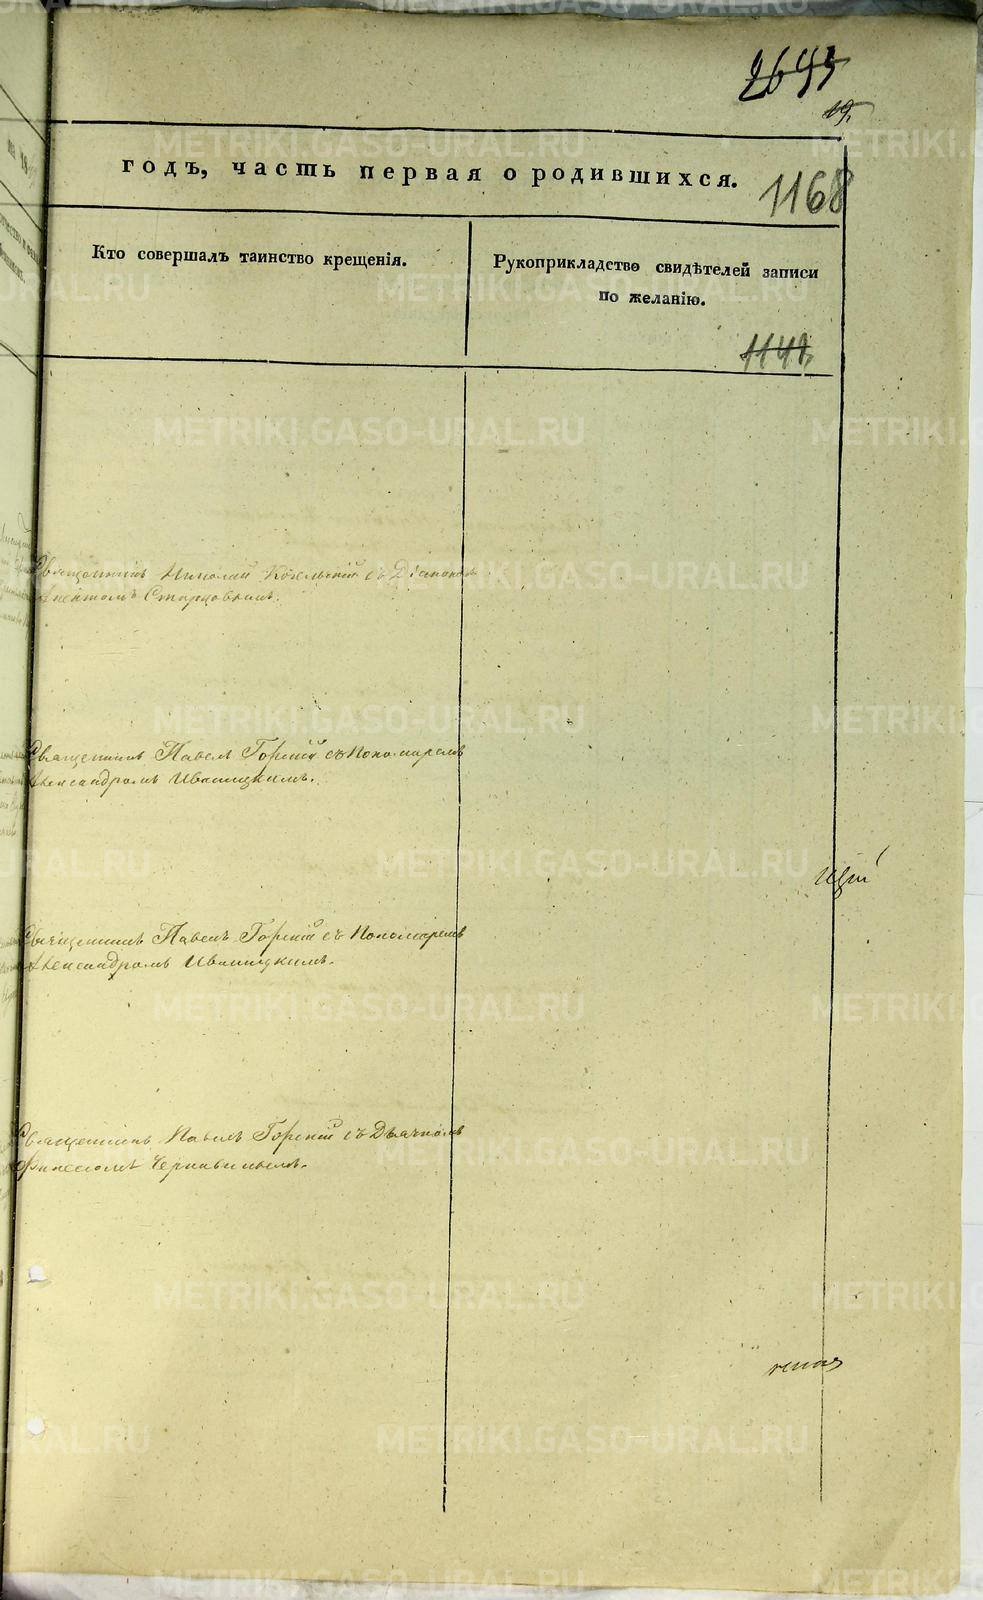 2645
19.
годъ, часть первая о родившихся.
1168
Кто совершалъ таинство крещенія.
Рукоприкладство свидѣтелей записи
по желанію.
1141
Священникъ Николай съ Діакономъ
Священникъ Павелъ Горскій съ Пономаремъ
Александромъ Иваницкимъ.
Священникъ Павелъ Горскій съ Пономаремъ
Александромъ Иваницкимъ.
Священникъ Павелъ Горскій съ Дьячкомъ
METRIKI.GASO-URAL.RU